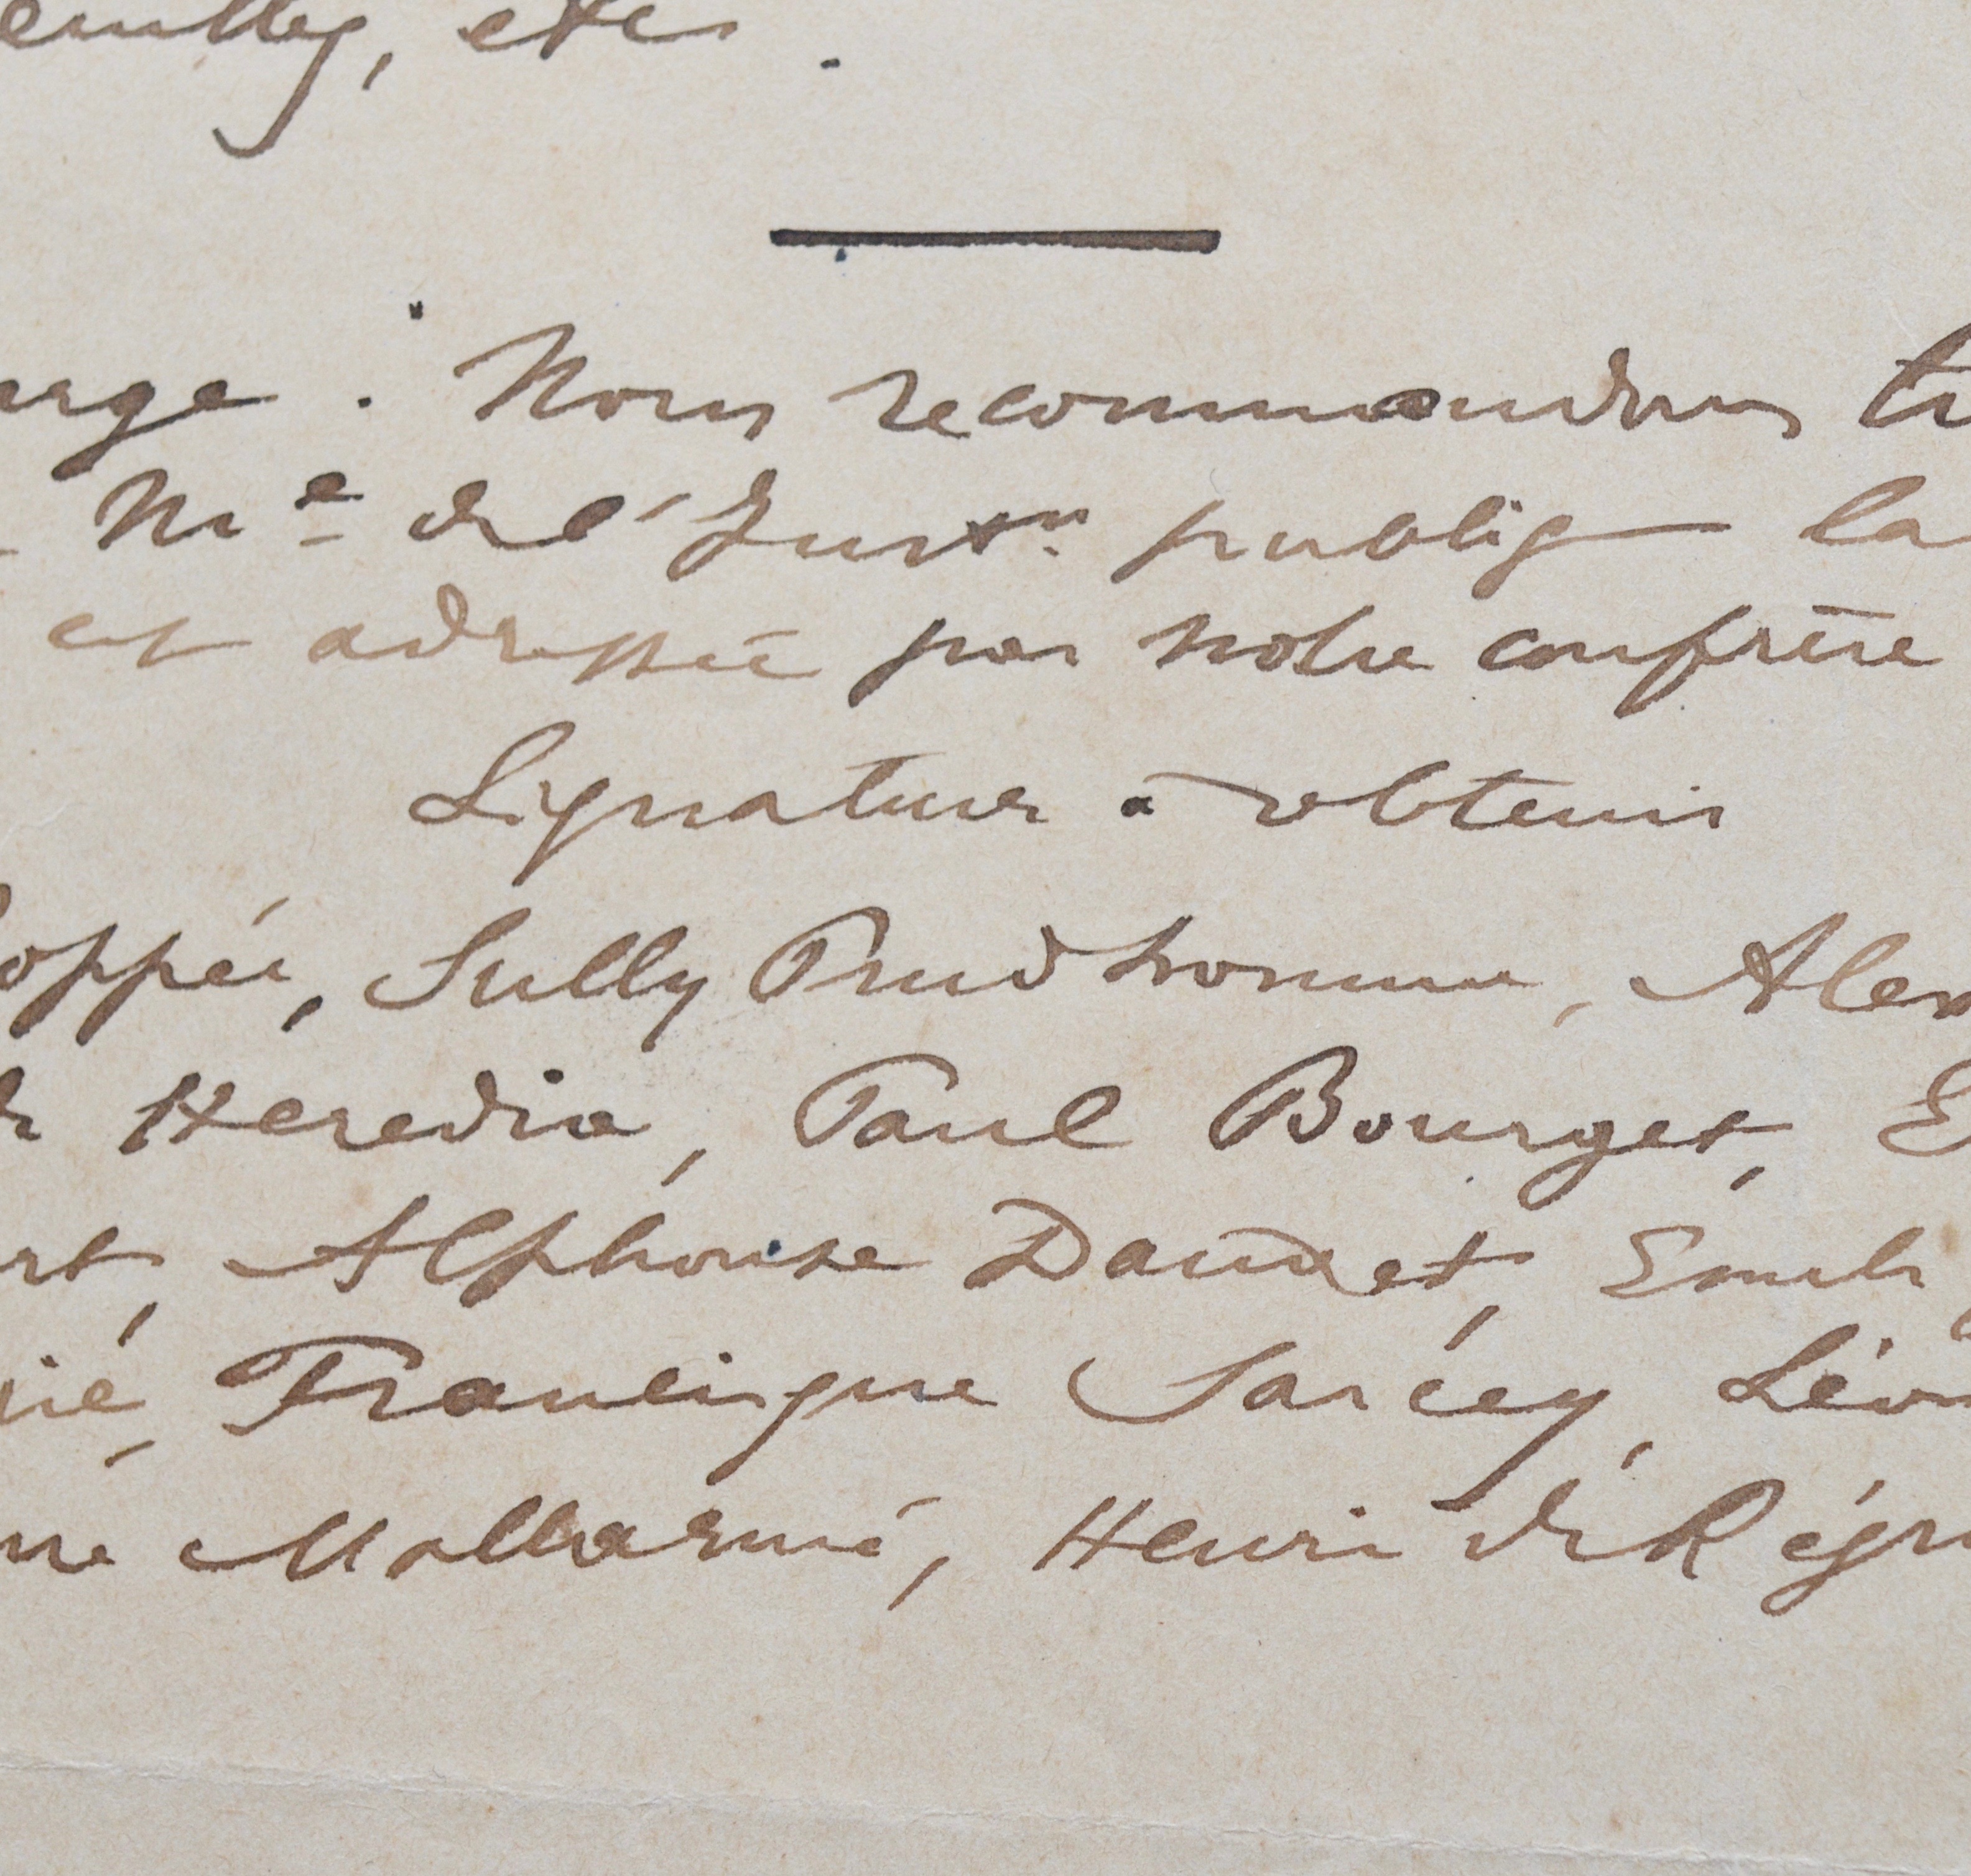 etc.
Nous recommandons
Me de l'Instn publiq la
est adressée par notre confrère
Signatures à obtenir
oppée, Sully Prudhomme, Alex
de Heredia, Paul Bourget, E
rt, Alphonse Daudet, Emile
ié, Francisque Sarcey, Léon
ne Mallarmé, Henri de Régni